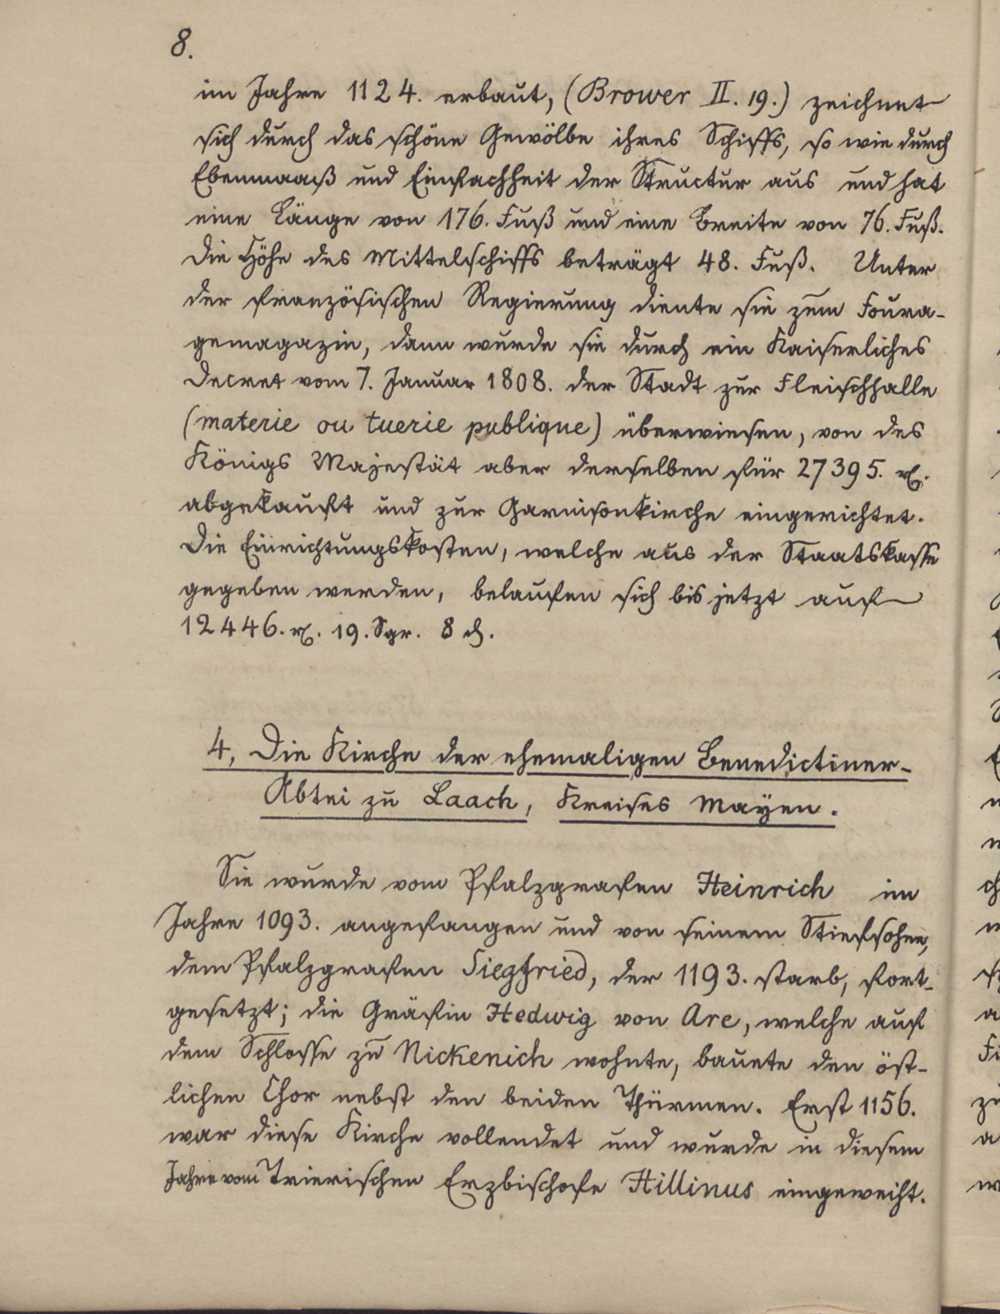 8.
im Jahre 1124. erbaut, (Brower II. 19.) zeichnet
sich durch das schöne Gewölbe ihres Schiffs, so wie durch
Ebenmaaß und Einfachheit der Structur aus und hat
eine Länge von 176. Fuß und eine Breite von 76. Fuß.
Die Höhe des Mittelschiffs beträgt 48. Fuß. Unter
der französischen Regierung diente sie zum Foura-
gemagazin, dann wurde sie durch ein Kaiserliches
Decret vom 7. Januar 1808. der Stadt zur Fleischhalle
(materie ou tuerie publique) überwiesen, von des
Königs Majestät aber derselben für 27395. rℓ.
abgekauft und zur Garnisonkirche eingerichtet.
Die Einrichtungskosten, welche aus der Staatskasse
gegeben werden, belaufen sich bis jetzt auf
12446. rℓ. 19. Sgr. 8 d.
4, Die Kirche der ehemaligen Benedictiner-
Abtei zu Laach, Kreises Mayen.
Sie wurde vom Pfalzgrafen Heinrich im
Jahre 1093. angefangen und von seinem Stiefsohne,
dem Pfalzgrafen Siegfried, der 1193. starb, fort-
gesetzt; die Gräfin Hedwig von Are, welche auf
dem Schlosse zu Nickenich wohnte, bauete den öst-
lichen Chor nebst den beiden Thürmen. Erst 1156.
war diese Kirche vollendet und wurde in diesem
Jahre vom Trierischen Erzbischofe Hillinus eingeweiht.